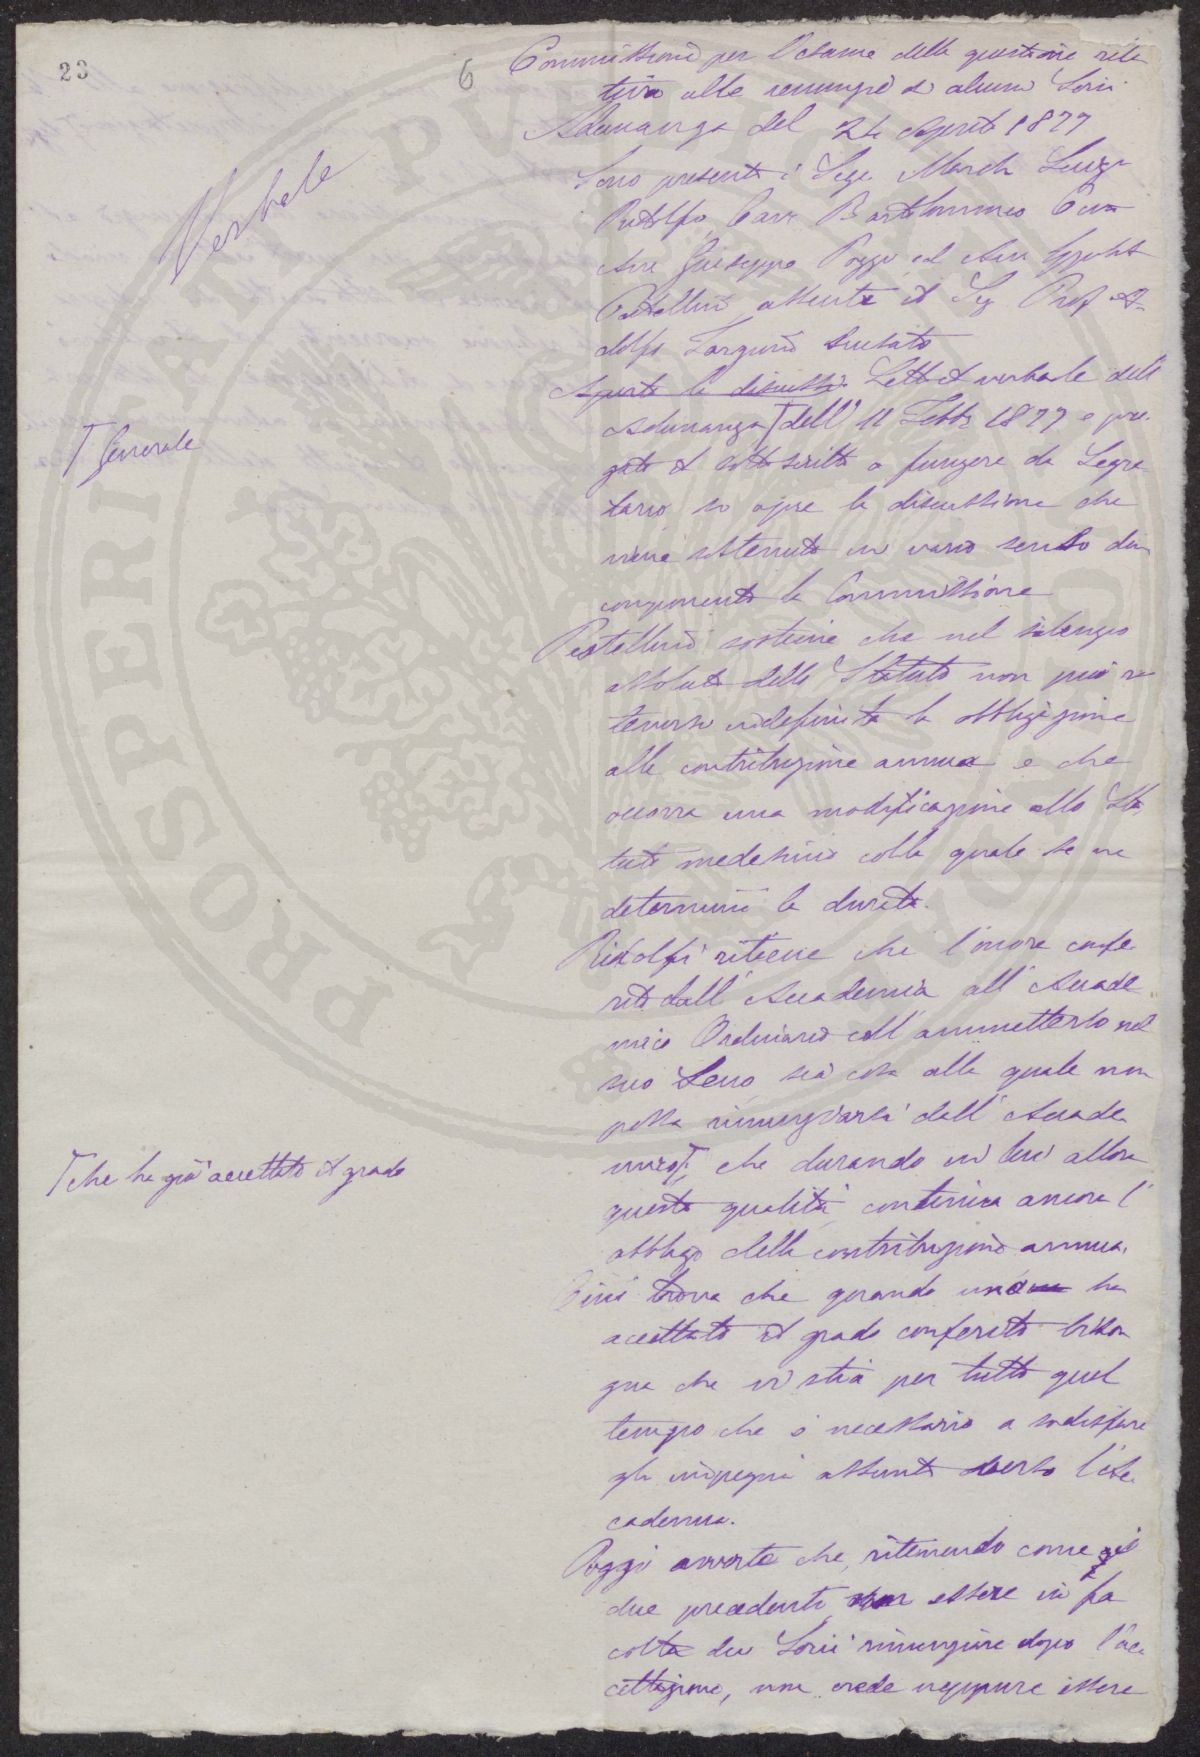 23
6
Verbale
Commissione per l'esame della questione rela
tiva alle renunzie di alcuni Soci
Adunanza del 24 Aprile 1877
Sono presenti i Sigg. March. Luigi
Ridolfi, Cav. Bartolommeo Cini
Avv. Giuseppe Poggi ed Avv. Ippolito
Pestellini, assente il Sig. Prof. A
dolfo Targioni scusato
Aperta la discuss. Letto il verbale dell'
Adunanza T dell' 11 Febb. 1877 e pre
gato il sottoscritto a fungere da Segre
tario si apre la discussione che
viene sostenuta in vario senso dai
componenti la Commissione
T Generale
Pestellini sostiene che nel silenzio
assoluto dello Statuto non può ri
tenersi indefinita la obbligazione
alla contribuzione annua e che
occorra una modificazione allo Sta
tuto medesimo colla quale se ne
determini la durata.
Ridolfi ritiene che l'onore confe
rito dall'Accademia all'Accade
mico Ordinario coll'ammetterlo nel
suo Seno, sia cosa alla quale non
possa rinunziarsi dall'Accade
mico T, che durando in lui allora
questa qualità, continua ancora l'
obbligo della contribuzione annua.
T che ha già accettato il grado
Cini trova che quando uno ha
accettato il grado conferito biso
gna che vi stia per tutto quel
tempo che è necessario a sodisfare
gli impegni assunti verso l'Ac
cademia.
Poggi avverte che, ritenendo come i
due precedenti non essere in fa
coltà dei Socii rinunziare dopo l'ac
cettazione, non crede neppure essere